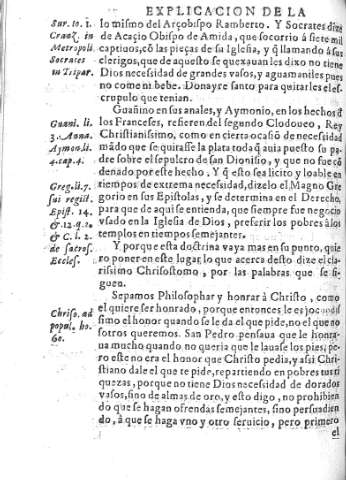 EXPLICACION DE LA
Sur. to. 1.
Crāz. in
Metropoli.
Socrates
in Tripar.
lo mismo del Arçobispo Ramberto. Y Socrates dize
de Acacio Obispo de Amida, que socorrio à siete mil
captiuos, cō las pieças de su Iglesia, y q̃ llamando à sus
clerigos, que de aquesto se quexauan les dixo no tiene
Dios necessidad de grandes vasos, y aguamaniles pues
no come ni bebe. Donayre santo para quitarles el es-
crupulo que tenian.
Guani. li.
3. Anna.
Aymon. li.
4. cap. 4.
Guañino en sus anales, y Aymonio, en los hechos d̃
los Franceses, refieren del segundo Clodoueo, Rey
Christianissimo, como en cierta ocasiō de necessidad
mādo que se quitasse la plata toda q̃ auia puesto su pa-
dre sobre el sepulcro de san Dionisio, y que no fue cō
denado por este hecho. Y q̃ esto sea licito y loable en
Greg. li. 7.
sui regist.
Epist. 14.
& 12. q. 2.
& C. 1. 2.
de sacros.
Eccles.
tiempos de extrema necessidad, dizelo el Magno Gre
gorio en sus Epistolas, y se determina en el Derecho,
para que de aqui se entienda, que siempre fue negocio
vsado en la Iglesia de Dios, preferir los pobres à los
templos en tiempos semejantes.
Y porque esta doctrina vaya mas en su punto, quie
ro poner en este lugar, lo que acerca desto dize el cla-
rissimo Chrisostomo, por las palabras que se si-
guen.
Chriso. ad
popul. ho.
60.
Sepamos Philosophar y honrar à Christo, como
el quiere ser honrado, porque entonces le es jocundis
simo el honor quando se le da el que pide, no el que no
sotros queremos. San Pedro pensaua que le honra-
ua mucho quando no queria que le lauase los pies, pe-
ro este no era el honor que Christo pedia, y assi Chri-
stiano dale el que te pide, repartiendo en pobres tus ri
quezas, porque no tiene Dios necessidad de dorados
vasos, sino de almas de oro, y esto digo, no prohibien
do que se hagan ofrendas semejantes, sino persuadien
do, à que se haga vno y otro seruicio, pero primero
el